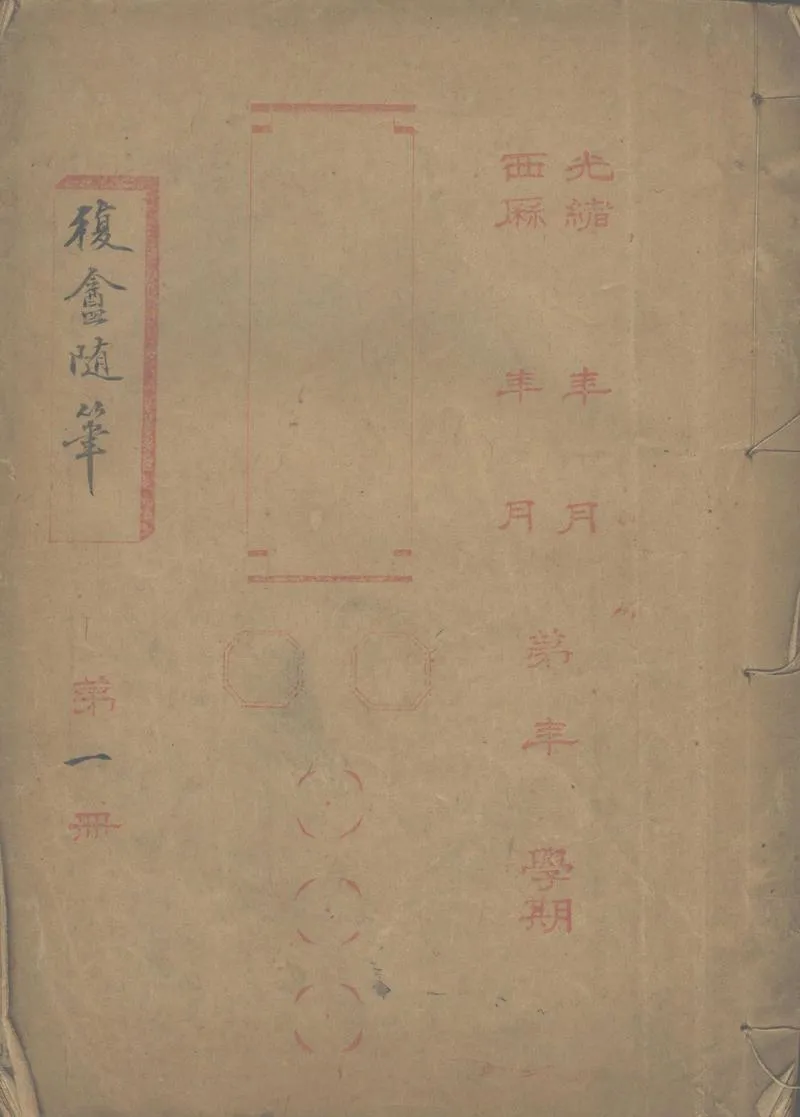 光緒 年 月
西厤 年 月
第 年 學期
複盦随筆
第一冊